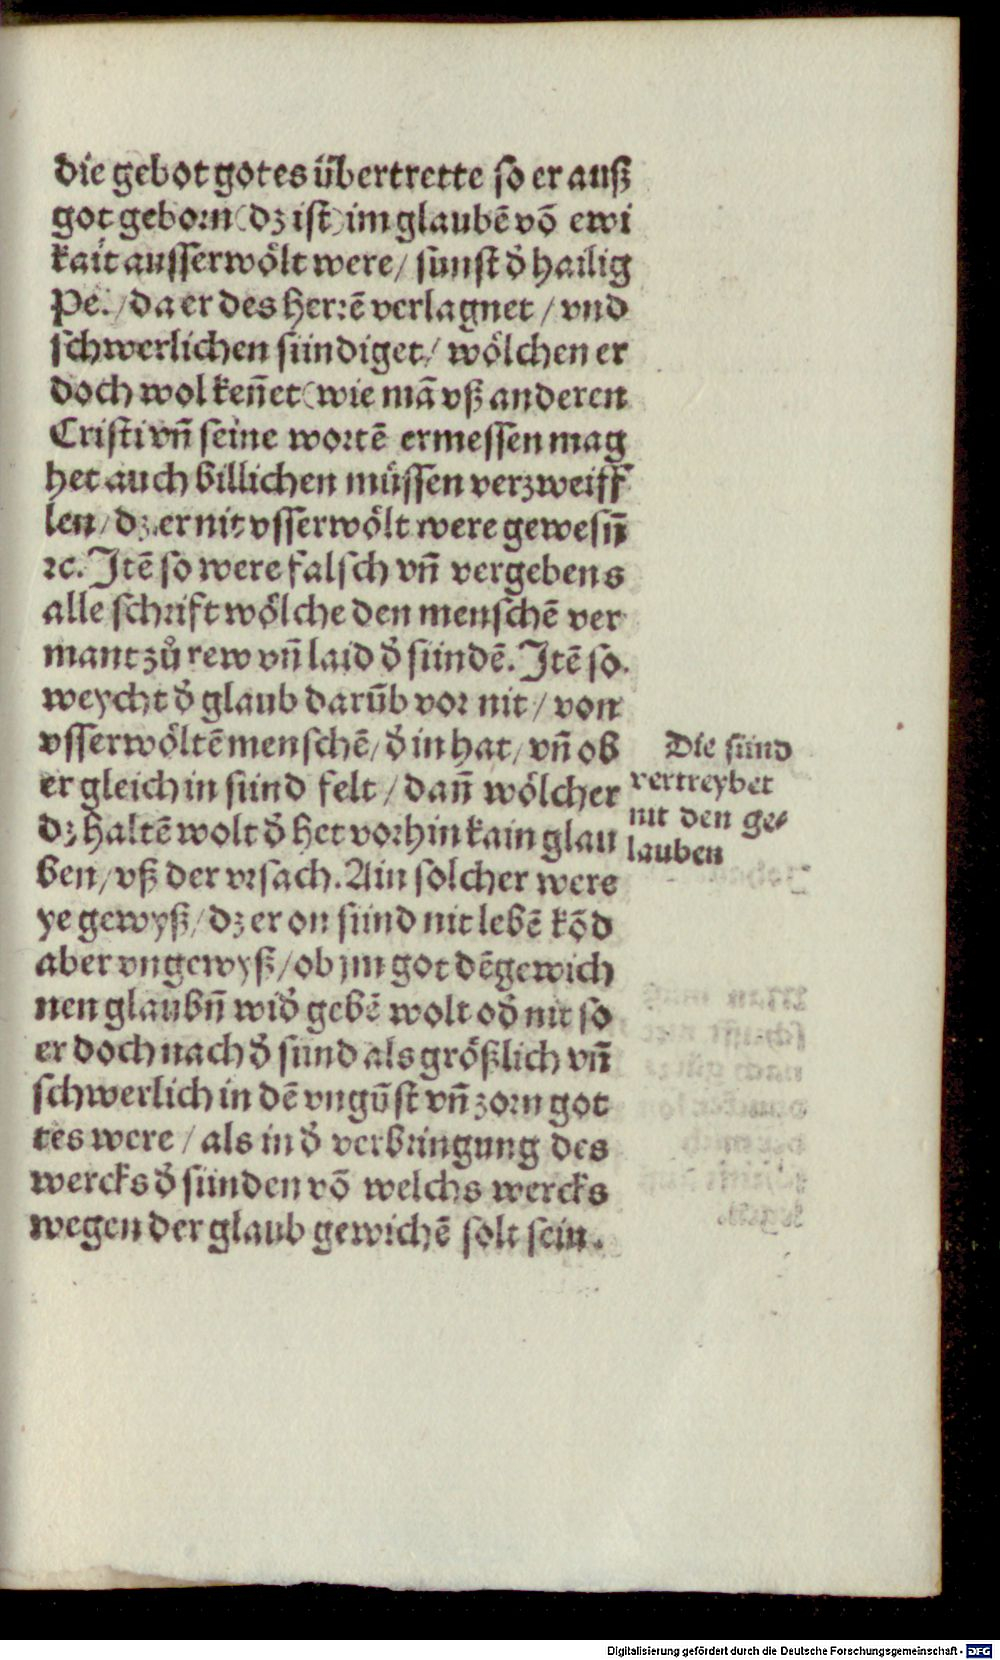 die gebot gotes übertrette so er auß
got geborn (dz ist) im glaubē võ ewi
kait ausserwölt were / sunst d̕ hailig
Pe. / da er des herrē verlagnet / vnd
schwerlichen sündiget / wölchen er
doch wol keñet (wie mã vß anderen
Cristi vñ seine wortē ermessen mag
het auch billichen müssen verzweiff
len / dz er nit vsserwölt were gewesñ
ꝛc. Jtē so were falsch vñ vergebens
alle schrift wölche den menschē ver
mant zů rew vñ laid d̕ sündē. Jtē so
weycht d̕ glaub darũb vor nit / von
vsserwöltē menschē / d̕ in hat / vñ ob
er gleich in sünd felt / dañ wölcher
dz haltē wolt d̕ het vorhin kain glau
ben / vß der vrsach. Ain solcher were
ye gewyß / dz er on sünd nit lebē kõd
aber vngewyß / ob jm got dē gewich
nen glaubñ wid̕ gebē wolt od̕ nit so
er doch nach d̕ sünd als größlich vñ
schwerlich in dē vngũst vñ zorn got
tes were / als in d̕ verbringung des
wercks d̕ sünden võ welchs wercks
wegen der glaub gewichē solt sein.
Die sünd
vertreybet
nit den ge⸗
lauben
Digitalisierung gefördert durch die Deutsche Forschungsgemeinschaft - DFG